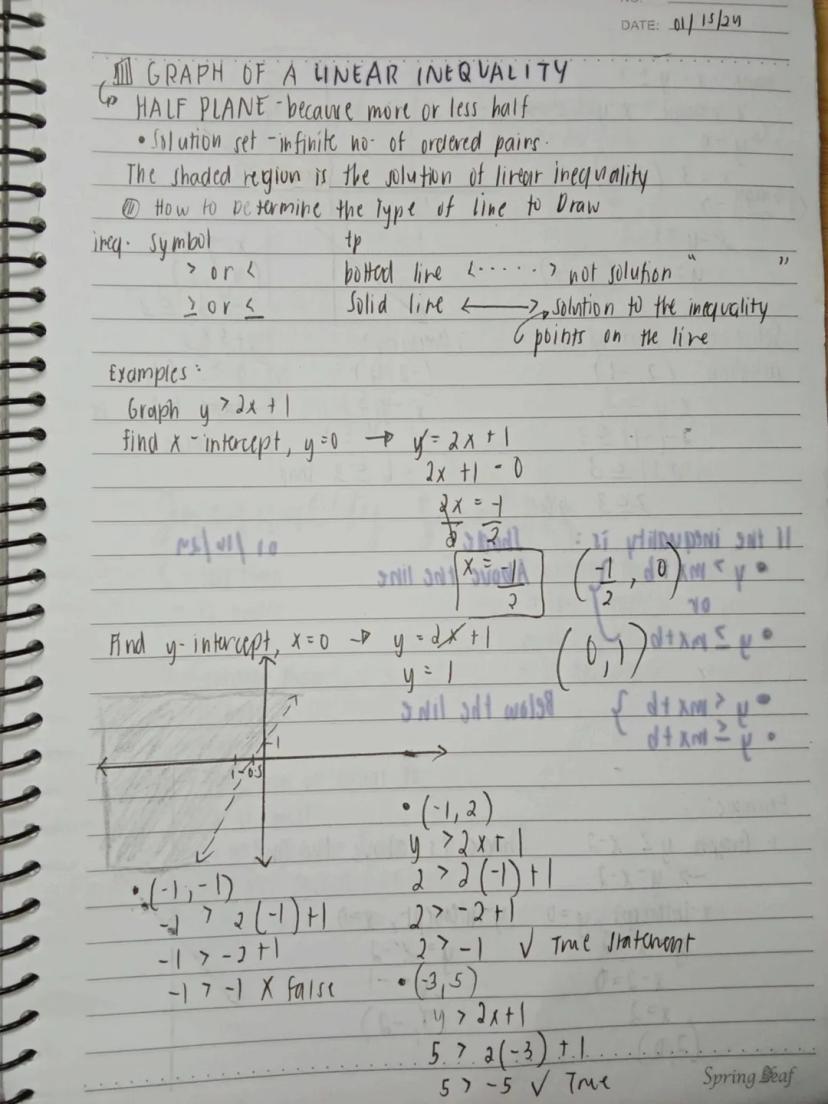 DATE: 01/15/24
GRAPH OF A LINEAR INEQUALITY
HALF PLANE - because more or less half
• Solution set - infinite no. of ordered pairs.
The shaded region is the solution of linear inequality
How to Determine the Type of line to Draw
ineq. symbol tp
> or < Dotted line <·····> not solution " "
≥ or ≤ Solid line ⟷ solution to the inequality
points on the line
Examples:
Graph y > 2x + 1
find x-intercept, y=0 → y = 2x + 1
2x + 1 = 0
2x = -1
2 2
x = -1/2 (-1/2, 0)
Find y-intercept, x=0 → y = 2x + 1 (0, 1)
y = 1
1
-1 -0.5
• (-1, 2)
y > 2x + 1
2 > 2(-1) + 1
2 > -2 + 1
2 > -1 ✓ True statement
• (-1, -1)
-1 > 2(-1) + 1
-1 > -2 + 1
-1 > -1 X False
• (-3, 5)
y > 2x + 1
5 > 2(-3) + 1
5 > -5 ✓ True
Spring Leaf